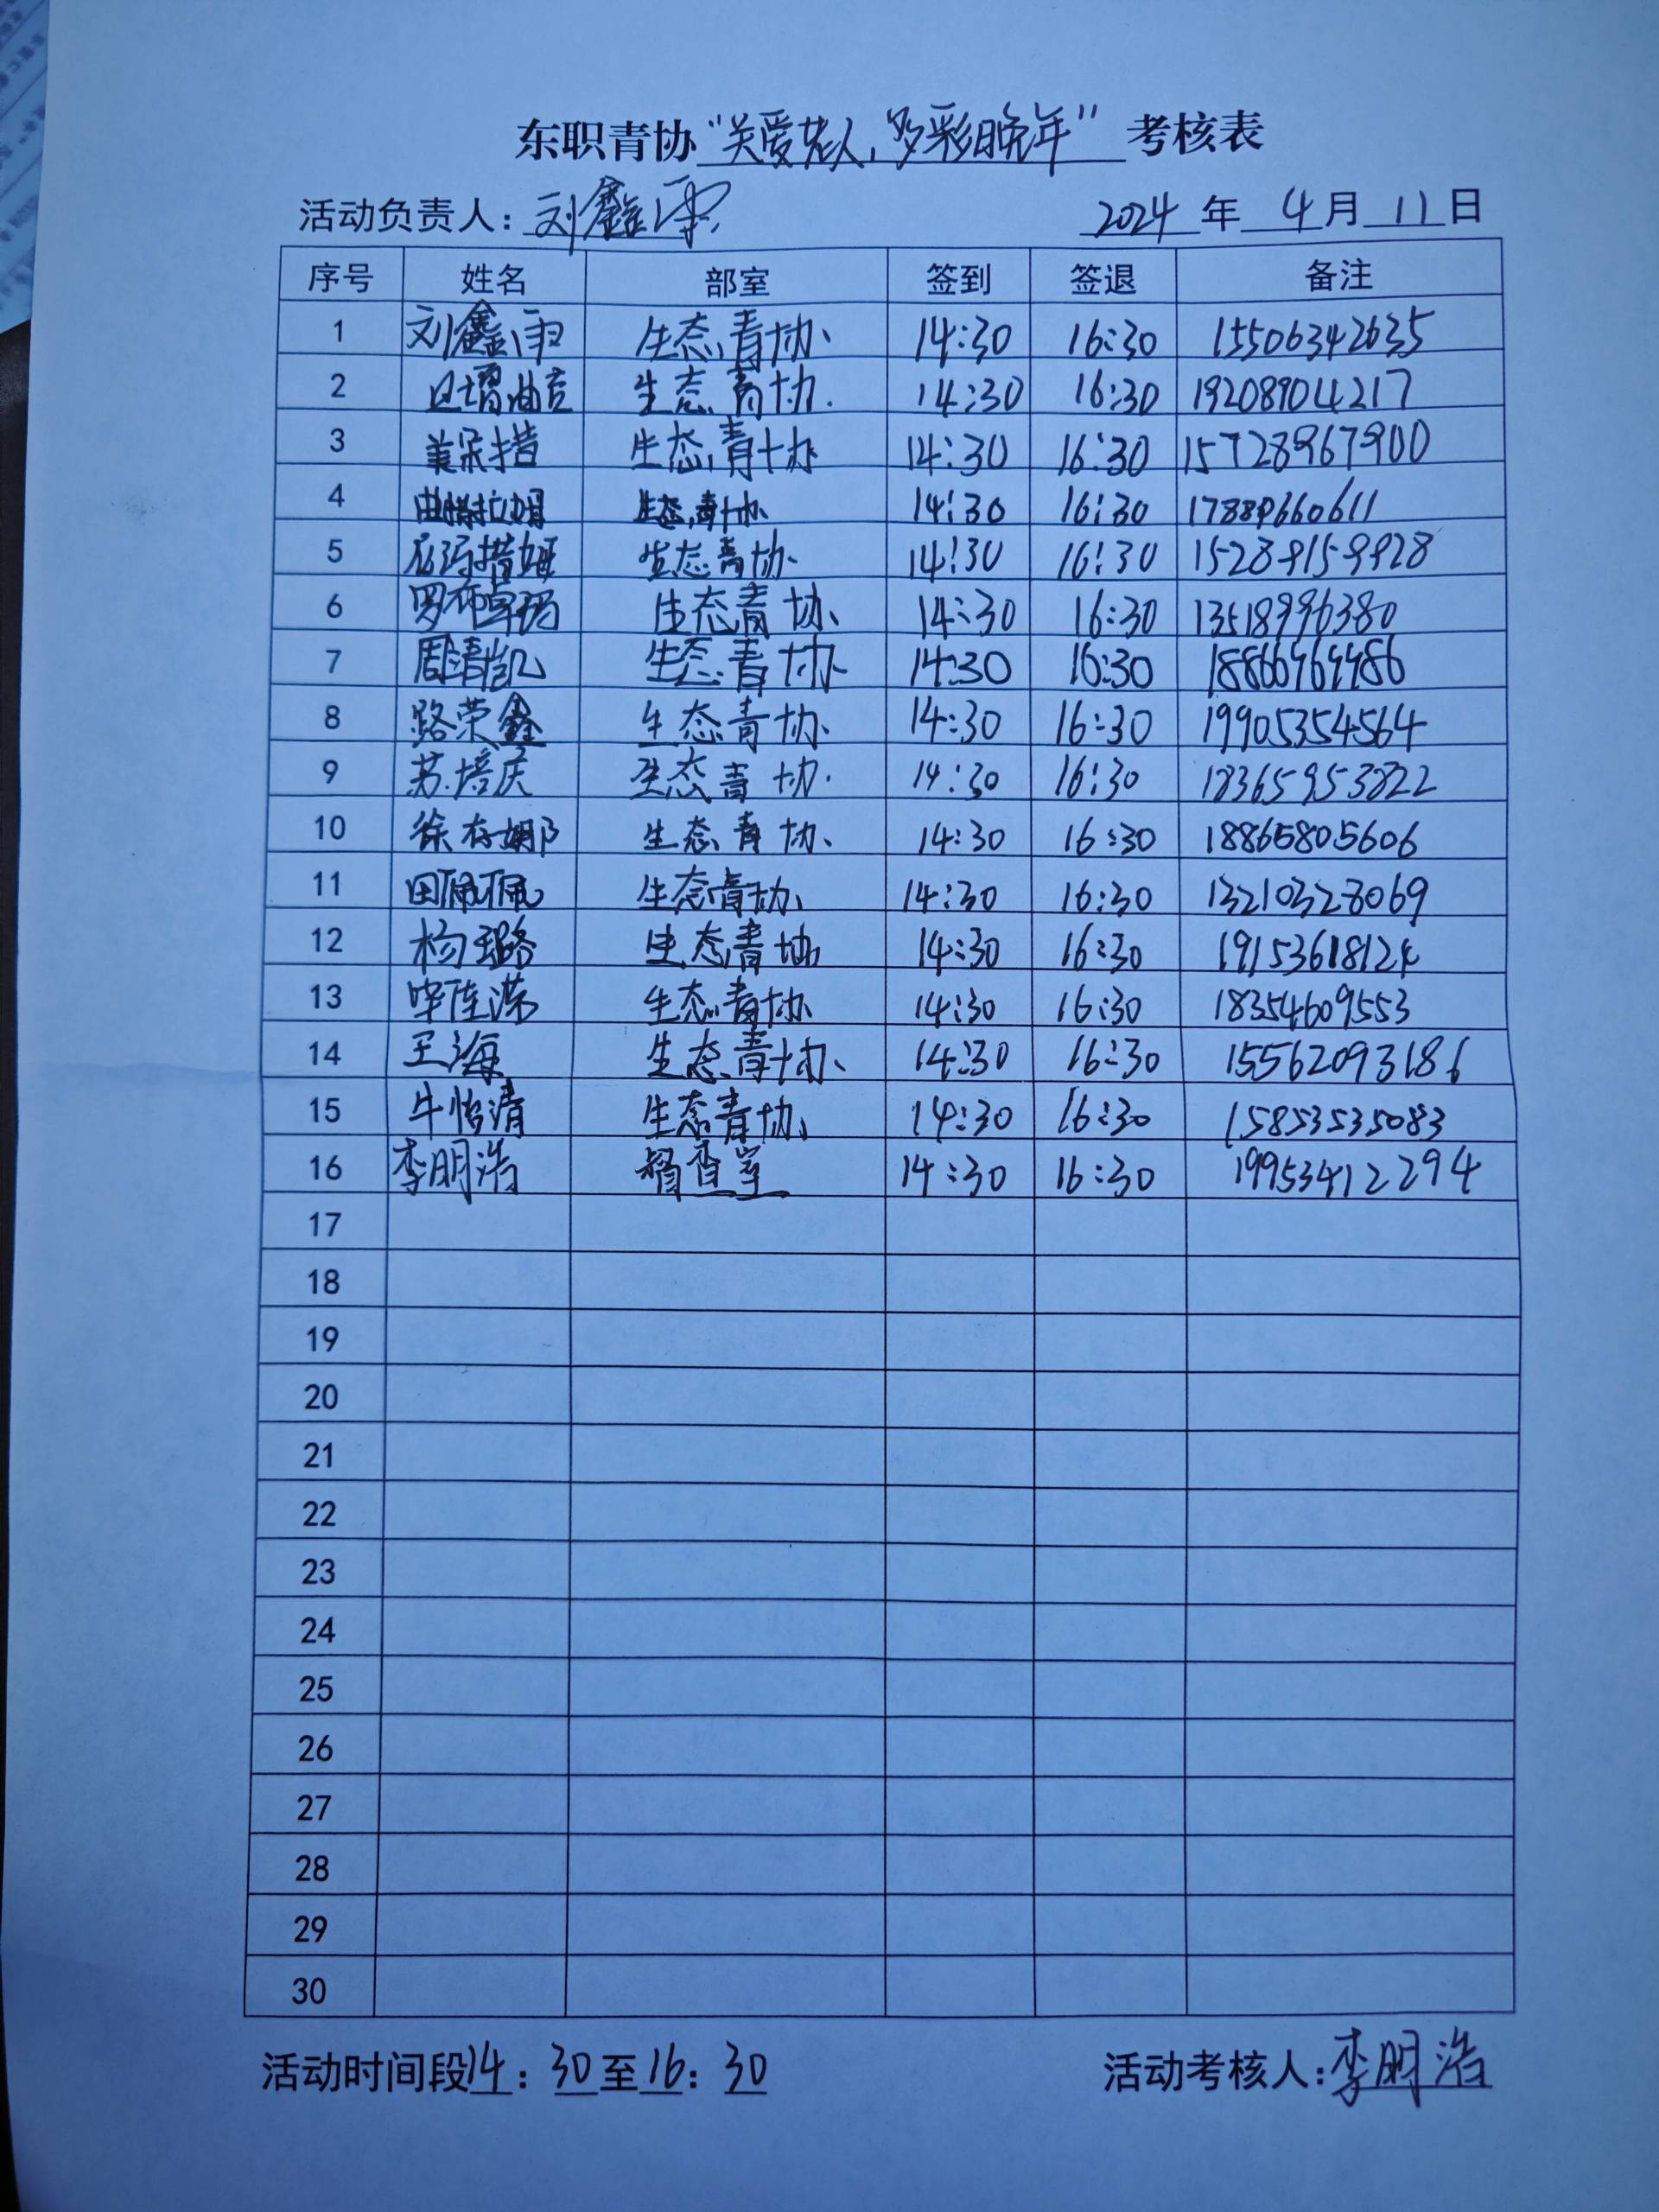 东职青协“关爱老人,多彩晚年”考核表
活动负责人:刘鑫雨 2024年4月11日
序号 姓名 部室 签到 签退 备注
1 刘鑫雨 生态青协 14:30 16:30 15506342635
2 旦增曲吉 生态青协 14:30 16:30 19208904217
3 美朵措 生态青协 14:30 16:30 15728967900
4 曲措拉姆 生态青协 14:30 16:30 17889660611
5 措姆 生态青协 14:30 16:30 15289159928
6 罗布卓玛 生态青协 14:30 16:30 13518996380
7 周清凯 生态青协 14:30 16:30 18866969986
8 路荣鑫 生态青协 14:30 16:30 19905354564
9 苏培庆 生态青协 14:30 16:30 18365953822
10 徐存娜 生态青协 14:30 16:30 18865805606
11 田佩佩 生态青协 14:30 16:30 13210328069
12 杨璐 生态青协 14:30 16:30 19153618124
13 生态青协 14:30 16:30 18354609553
14 王海 生态青协 14:30 16:30 15562093186
15 牛怡清 生态青协 14:30 16:30 15853535083
16 李明浩 督查室 14:30 16:30 19953412294
17
18
19
20
21
22
23
24
25
26
27
28
29
30
活动时间段14:30至16:30 活动考核人:李明浩